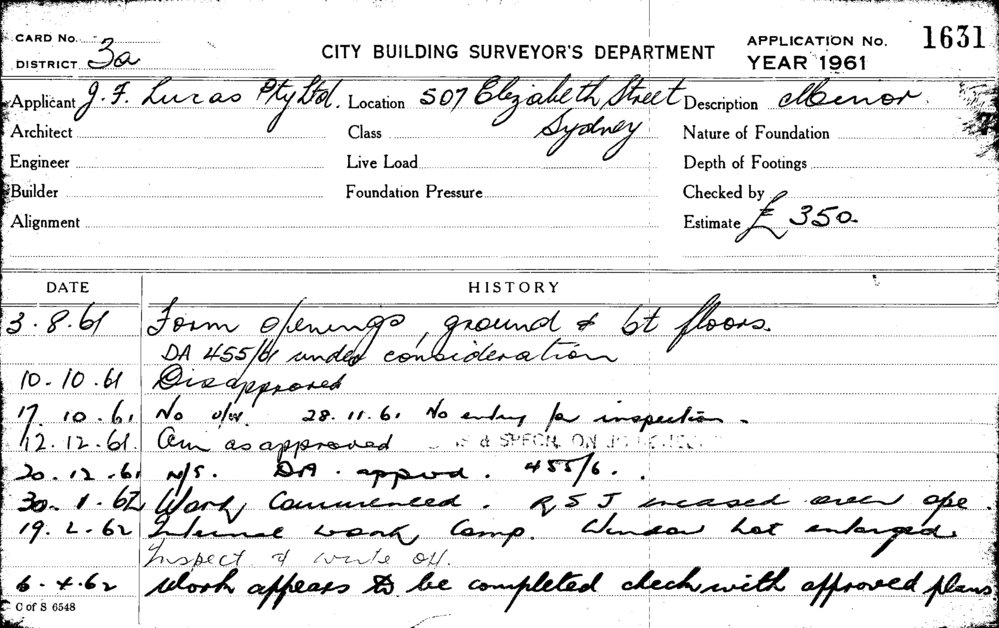 CARD No. 
DISTRICT 3a
CITY BUILDING SURVEYOR'S DEPARTMENT
APPLICATION No. 1631
YEAR 1961
Applicant J. F. Lucas Pty Ltd. Location 507 Elizabeth Street Description Minor.
Architect Class Sydney Nature of Foundation
Engineer Live Load Depth of Footings
Builder Foundation Pressure Checked by
Alignment Estimate £ 350
DATE HISTORY
3.8.61 Form openings, ground & 1st floors.
DA 455/61 under consideration
10.10.61 Disapproved
17.10.61 No 28.11.61 No entry for inspection.
12.12.61 as approved & SPECN. ON
20.12.61 N/S. DA. appvd. 455/6.
30.1.62 Work Commenced. R S J encased over ope.
19.2.62 Internal work Comp. Window not enlarged.
Inspect & write off.
6.4.62 Work appears to be completed check with approved plans
C of S 6548